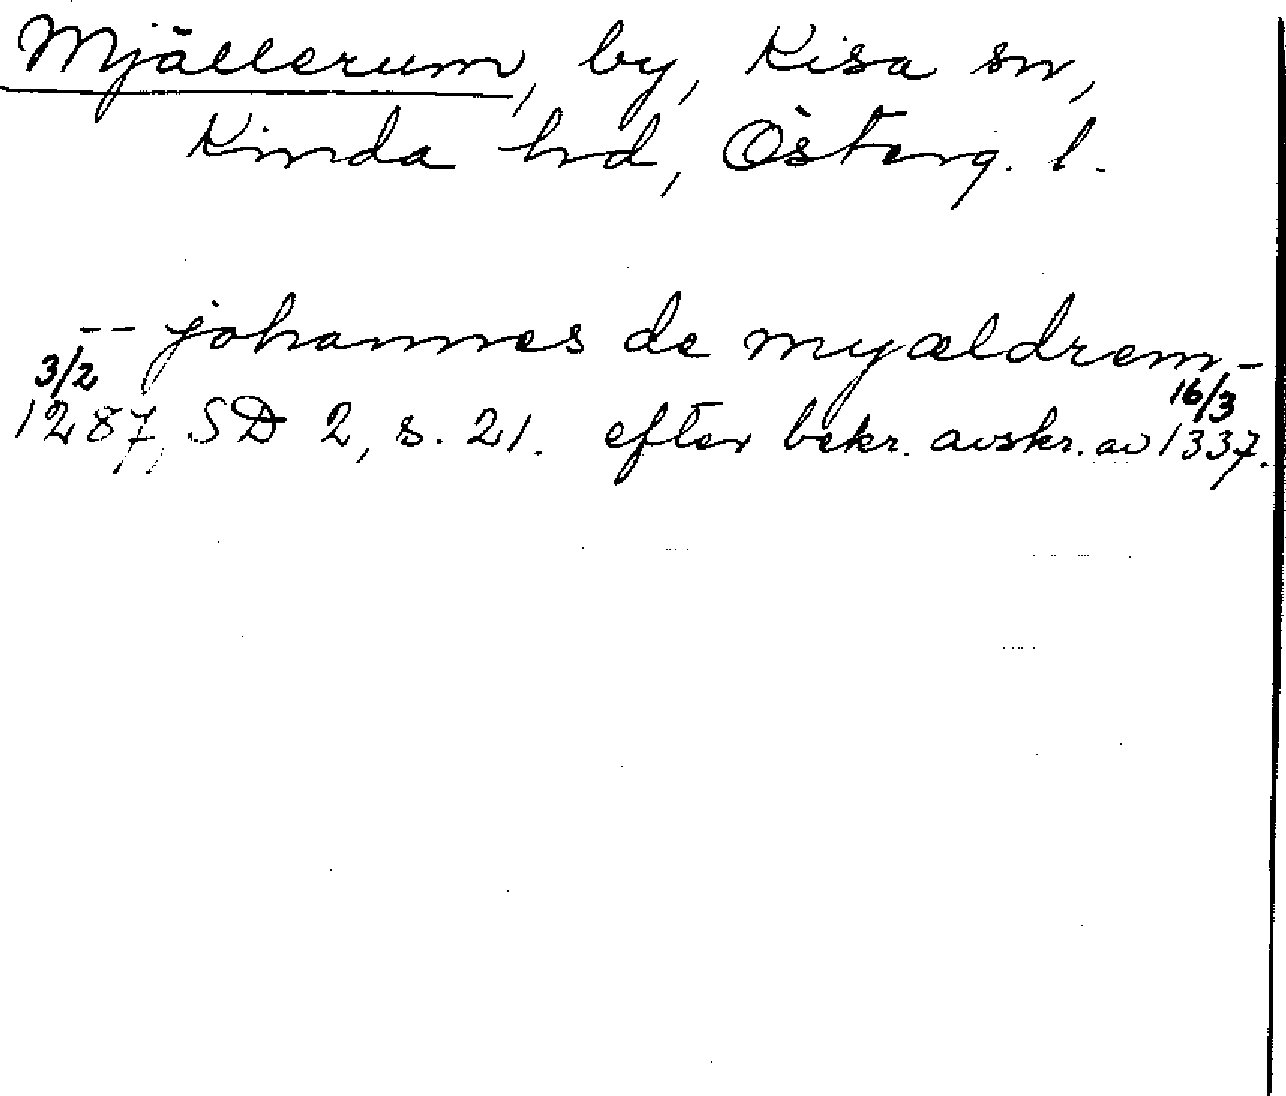 Mjällerum, by, Kisa sn,
Kinda hd, Österg. l.
-- johannes de myældrem -
3/2 16/3
1287, SD 2, s. 21. efter bekr. avskr. av 1337.